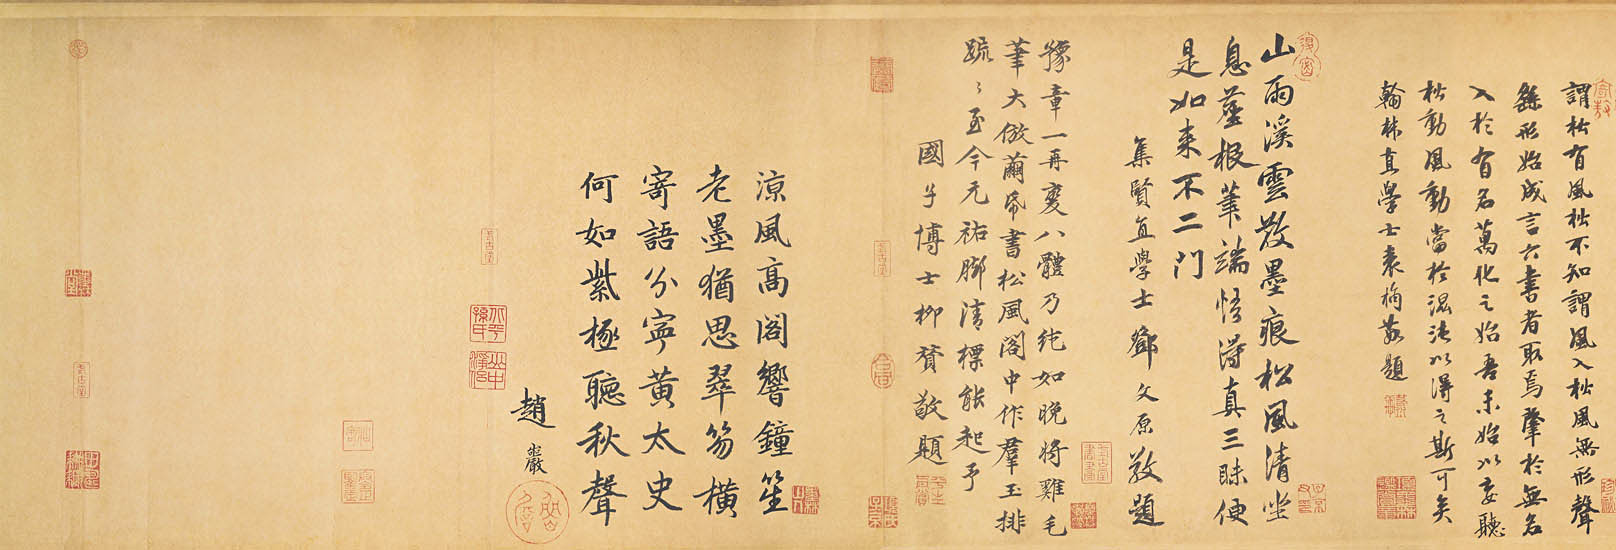 謂松有風松不知謂風入松風無形聲
繇形始成言六書者取焉肇於無名
入於有名萬化之始吾未始以妄聽
松動風動當於混沌以得之斯可矣
翰林直學士袁桷敬題
山雨溪雲散墨痕松風清坐
息塵根筆端悟得真三昧便
是如來不二門
集賢直學士鄧文原敬題
豫章一再變八體乃純如晚將雞毛
筆大倣繭帋書松風閣中作羣玉排
疏〻至今元祐腳清標能起予
國子博士柳贯敬題
涼風高閣響鐘笙
老墨猶思翠笏橫
寄語分寧黃太史
何如紫極聽秋聲
趙巖